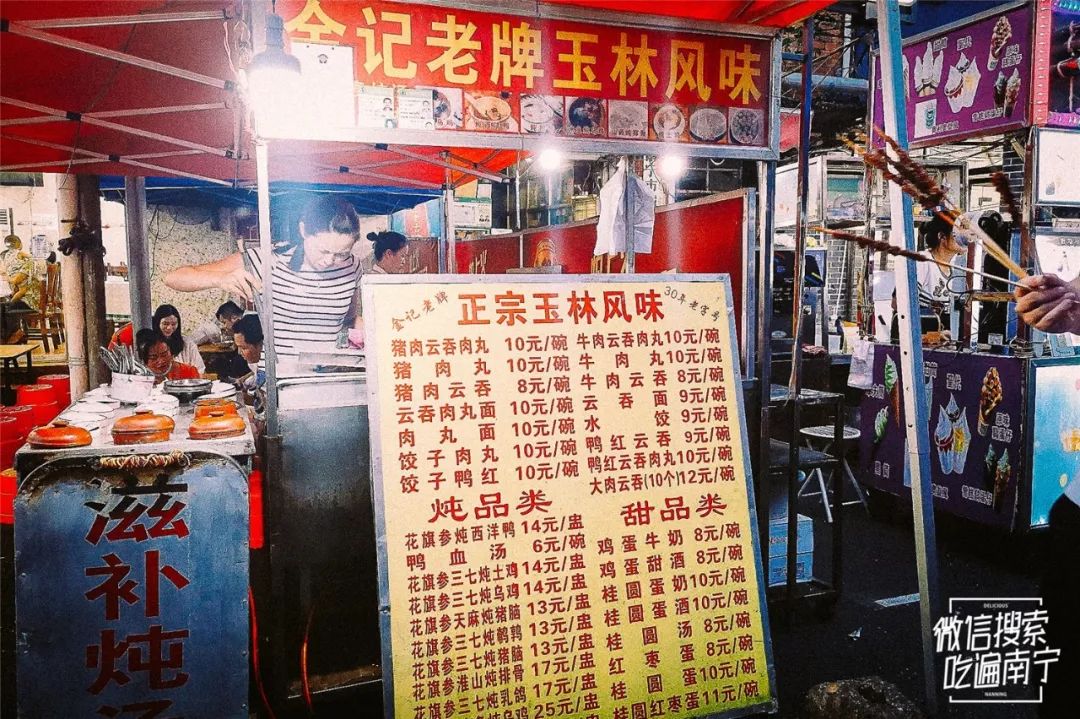 金记老牌玉林风味
金记老牌
正宗玉林风味
30年老字号
猪肉云吞肉丸 10元/碗
猪肉丸 10元/碗
猪肉云吞 8元/碗
云吞肉丸面 10元/碗
肉丸面 10元/碗
饺子肉丸 10元/碗
饺子鸭红 10元/碗
牛肉云吞肉丸10元/碗
牛肉丸10元/碗
牛肉云吞 8元/碗
云吞面 9元/碗
水饺 9元/碗
鸭红云吞 9元/碗
鸭红云吞肉丸10元/碗
大肉云吞(10个)12元/碗
炖品类
花旗参炖西洋鸭 14元/盅
鸭血汤 6元/碗
花旗参三七炖土鸡 14元/盅
花旗参三七炖乌鸡 14元/盅
花旗参天麻炖猪脑 13元/盅
花旗参三七炖鹌鹑 13元/盅
花旗参三七炖猪脑 13元/盅
花旗参淮山炖排骨 17元/盅
花旗参三七炖乳鸽 17元/盅
25元/盅
甜品类
鸡蛋牛奶 8元/碗
鸡蛋甜酒 8元/碗
桂圆蛋奶10元/碗
桂圆蛋酒10元/碗
桂圆汤 8元/碗
红枣蛋 8元/碗
桂圆蛋 9元/碗
桂圆红枣蛋11元/碗
滋补炖汤
DELICIOUS
微信搜索
吃遍南宁
NANNING